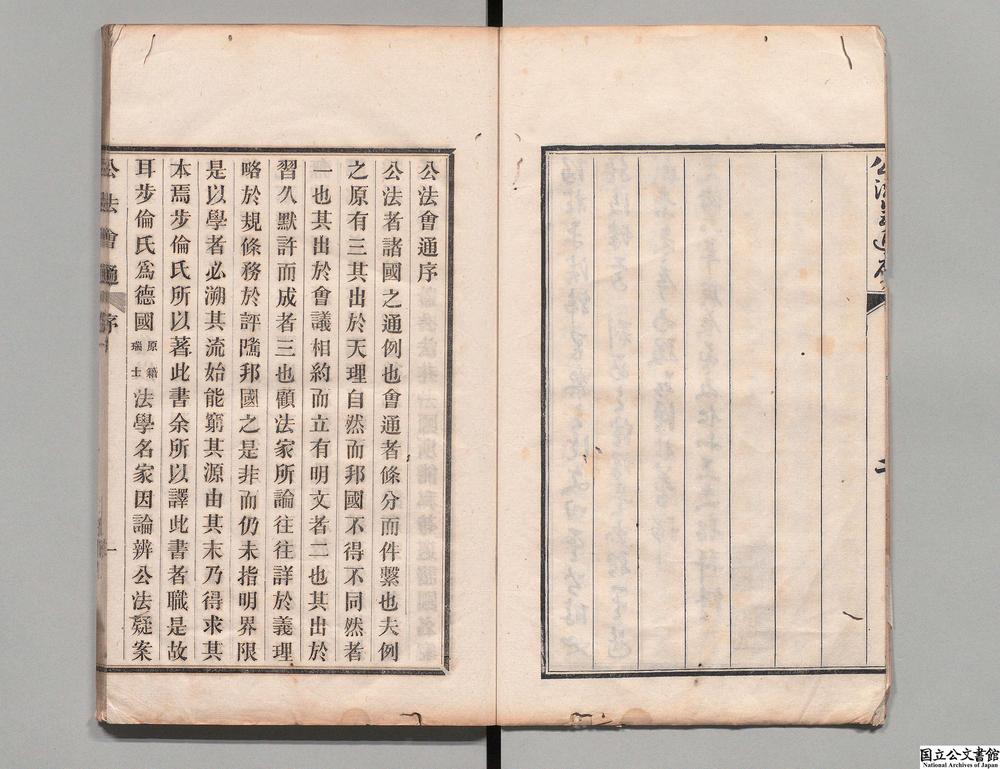 公法會通序
公法者諸國之通例也會通者條分而件繫也夫例
之原有三其出於天理自然而邦國不得不同然者
一也其出於會議相約而立有明文者二也其出於
習久默許而成者三也顧法家所論往往詳於義理
略於規條務於評隲邦國之是非而仍未指明界限
是以學者必溯其流始能窮其源由其末乃得求其
本焉步倫氏所以著此書余所以譯此書者職是故
耳步倫氏爲德國原籍瑞士法學名家因論辨公法疑案
公法會通 序 一
国立公文書館
National Archives of Japan